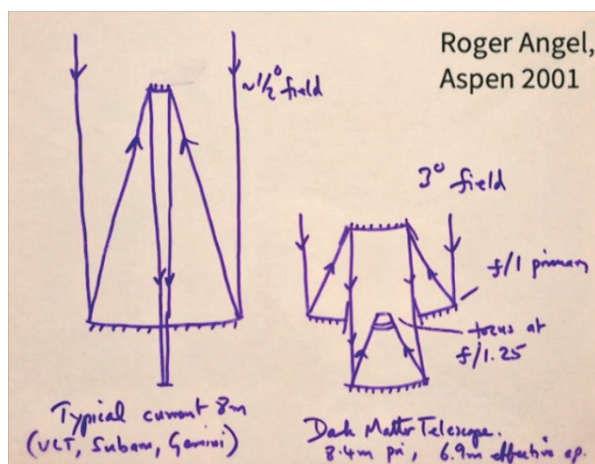 Roger Angel,
Aspen 2001
~1/2° field
3° field
f/1 primary
focus at
f/1.25
Typical current 8m
(VLT, Subaru, Gemini)
Dark Matter Telescope.
8.4m pri, 6.9m effective ap.